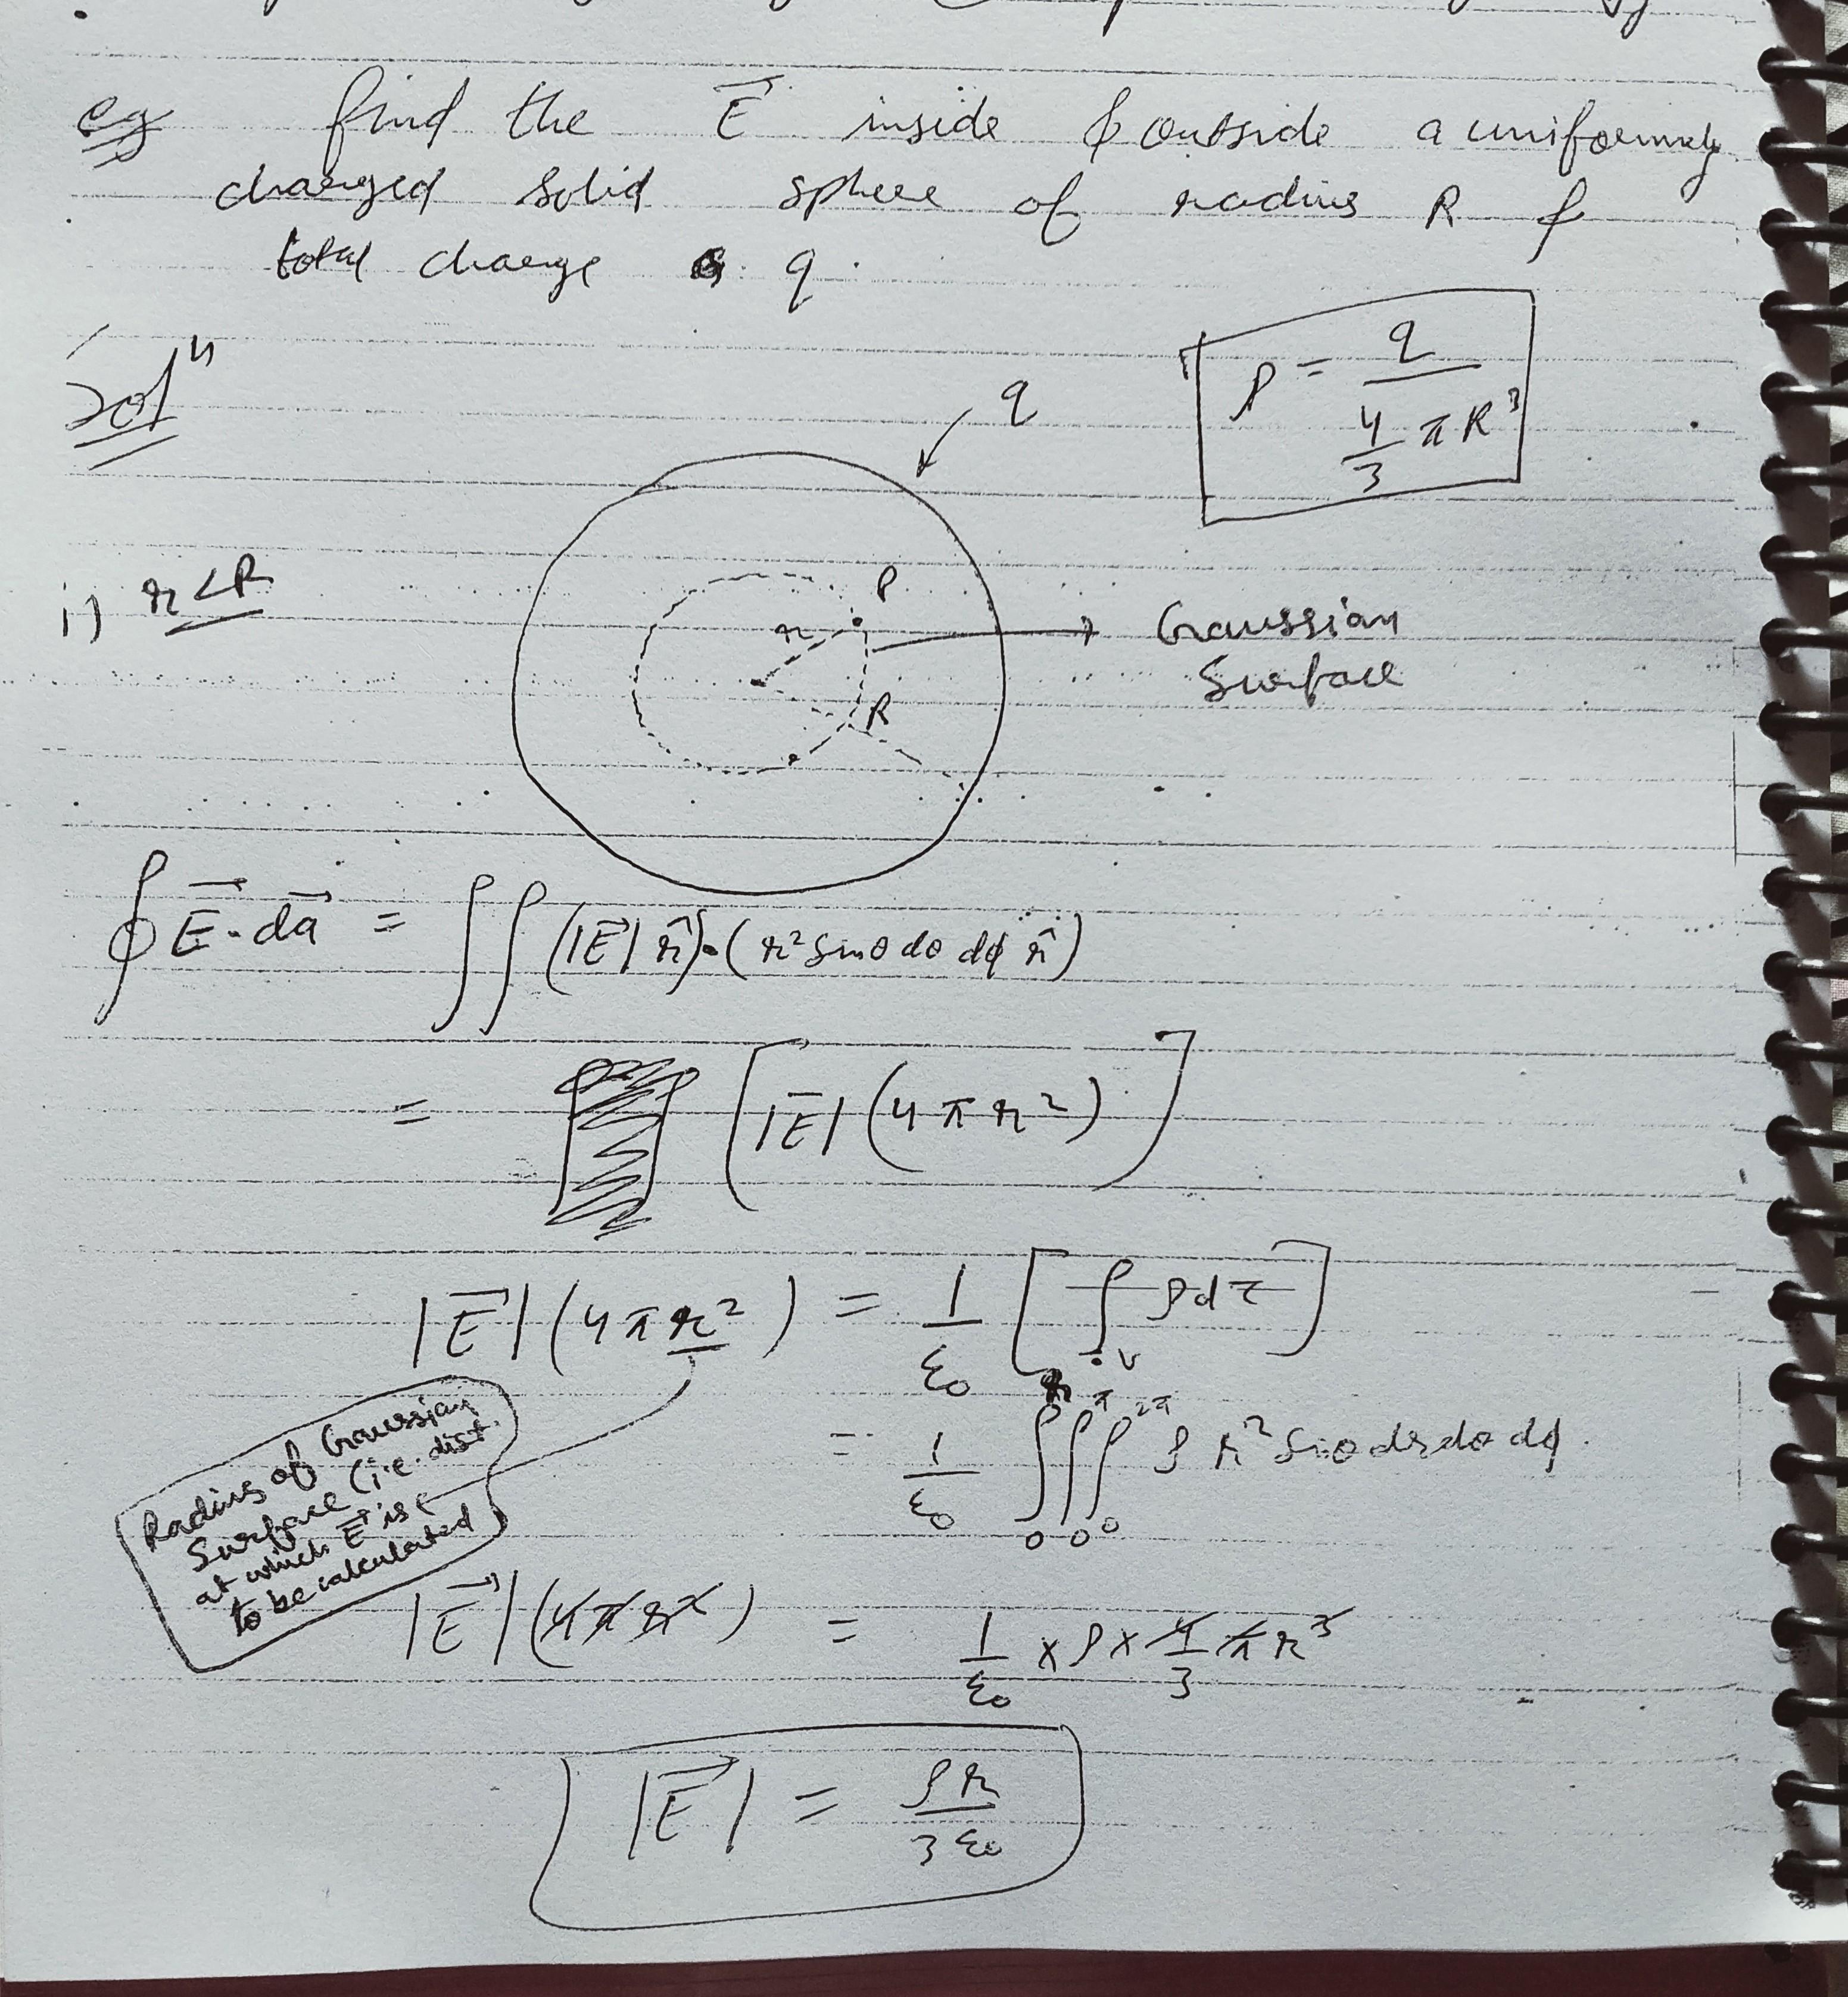 eg find the E⃗ inside & outside a uniformly
charged solid sphere of radius R &
total charge q.
Solⁿ
ρ = q / (4/3 πR³)
q
i) r<R
P
r
Gaussian
Surface
R
∮E⃗·da⃗ = ∫∫(|E⃗| r̂)·(r² sinθ dθ dϕ r̂)
= [|E⃗|(4πr²)]
|E⃗|(4πr²) = 1/ε₀ [∫ᵥ ρdτ]
= 1/ε₀ ∫₀ʳ ∫₀^π ∫₀^2π ρ r² sinθ dr dθ dϕ.
Radius of Gaussian
Surface (i.e. dist.
at which E⃗ is
to be calculated
|E⃗|(4πr²) = 1/ε₀ × ρ × 4/3 πr³
|E⃗| = ρr / 3ε₀